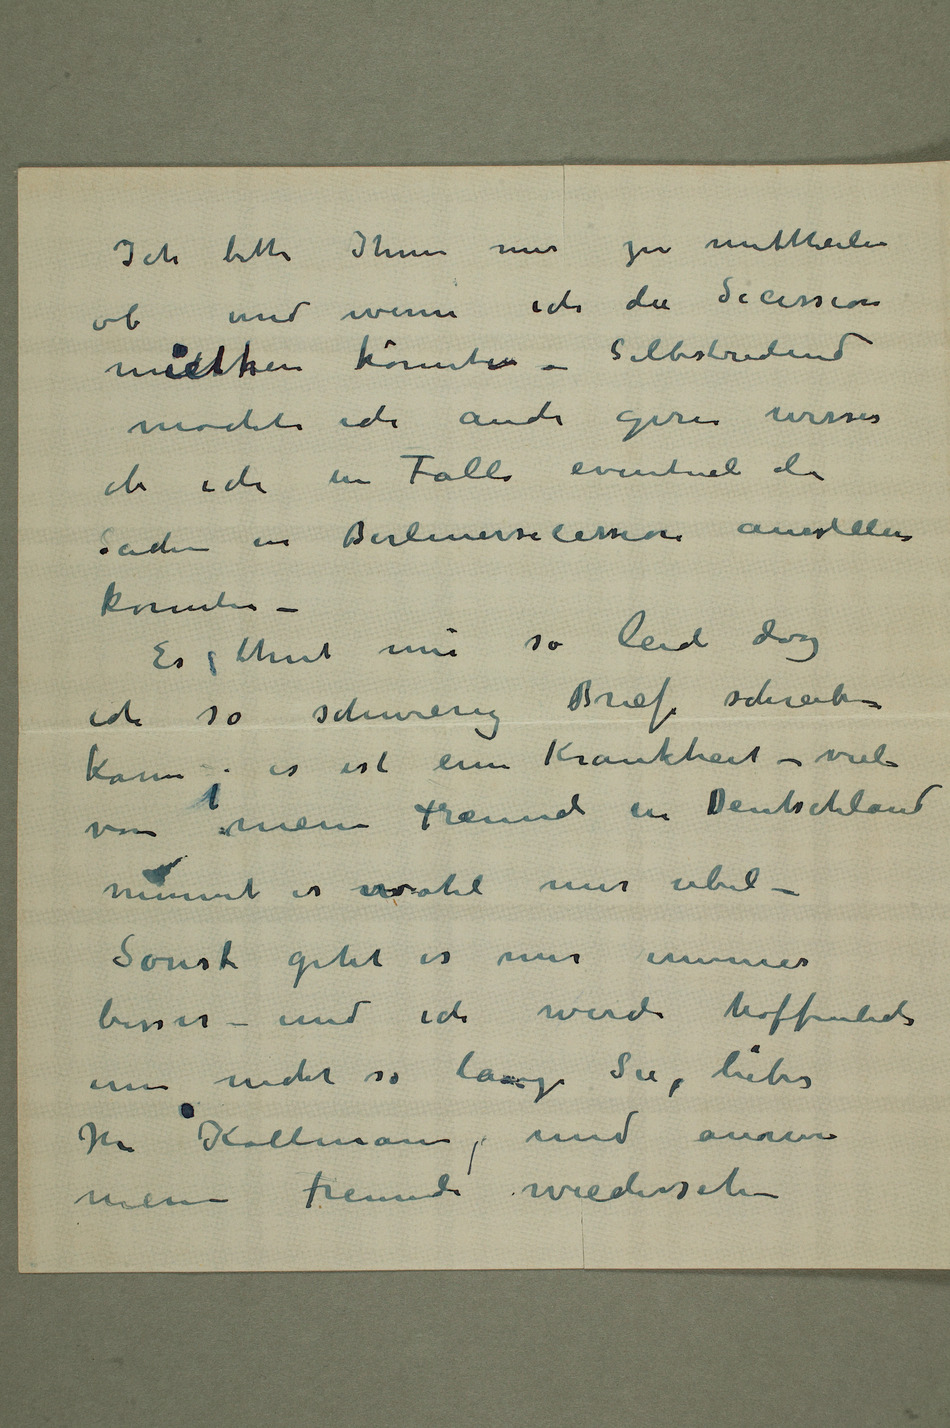 Ich bitte Ihnen mir zu mittheilen
ob und wenn ich die Secession
miethen könnten – Selbstredend
mochte ich auch gern wissen
ob ich im Falle eventuel die
Sachen in Berlinersecession austellen
konnten –
Es thut mir so leid dag
ich so schwierig Briefe schreiben
kann – es ist eine Krankheit – viele
von meine Freunde in Deutschland
nimmt es wohl mir ubel –
Sonst geht es mir immer
besser – und ich werde hoffentlich
nicht so lange Sie, lieber
Hr Kollmann, und andere
meine Freunde wiedersehen